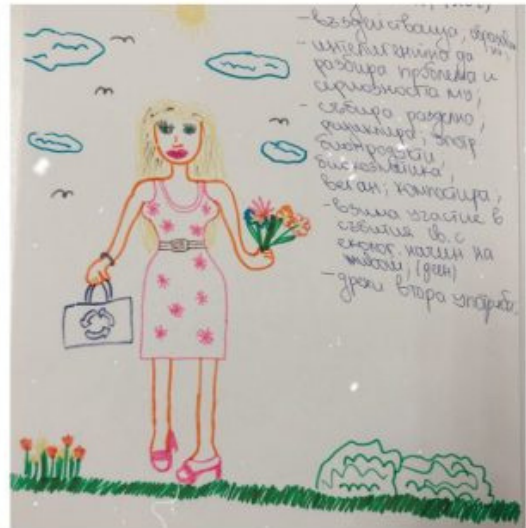 - въздействаща,
- интелигентно да
разбира проблема и
сериозността му;
- събира разделно,
биопродукти,
биокозметика,
веган; компостира,
- взима участие в
събития
еколог. начин на
живот,
- дрехи втора употреба.